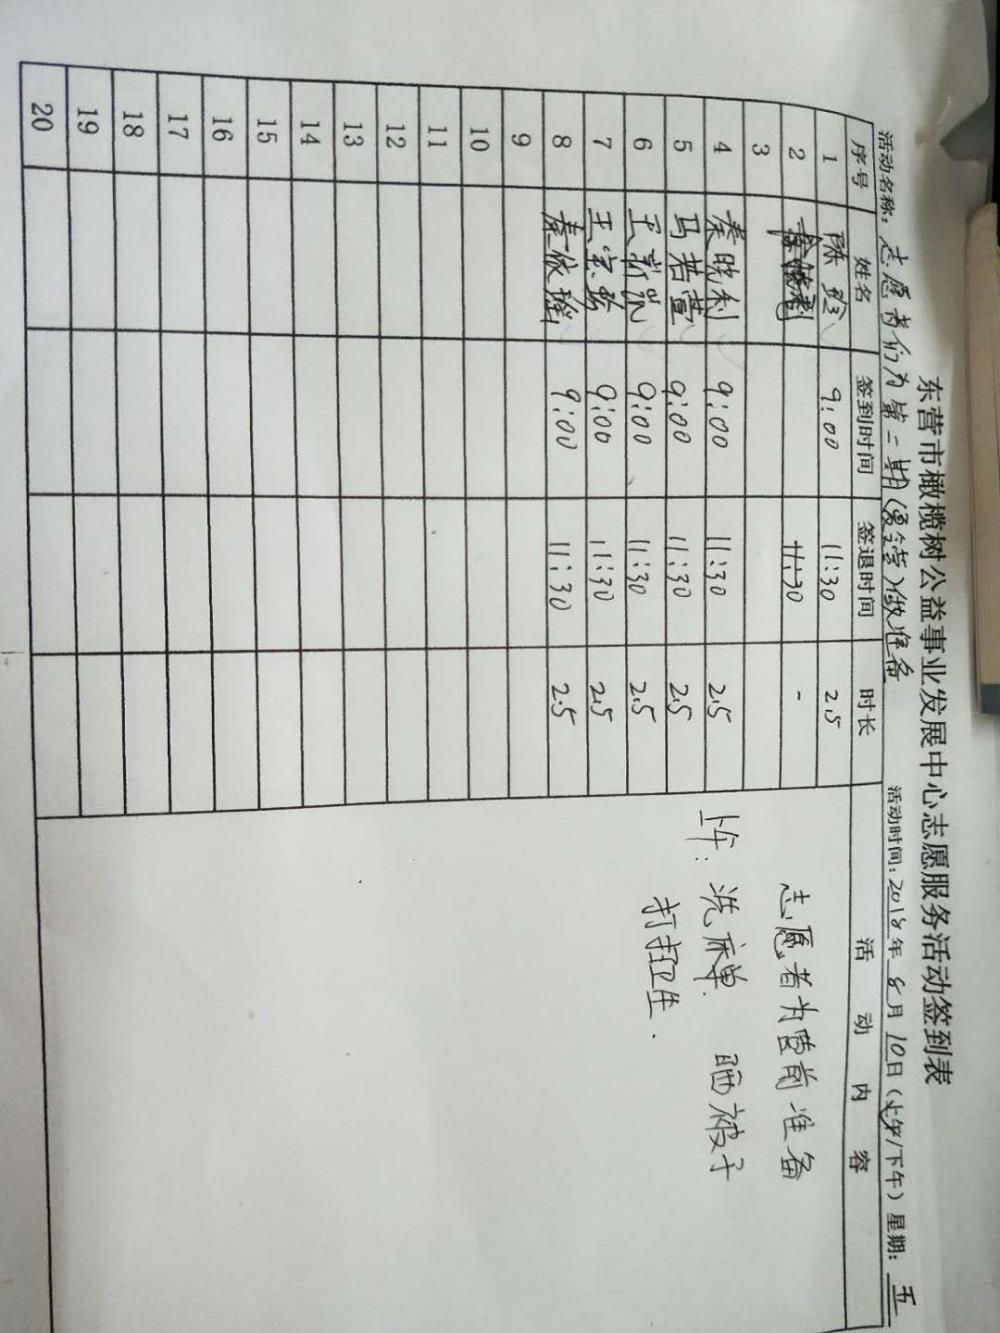 东营市橄榄树公益事业发展中心志愿服务活动签到表
活动名称：志愿者们为第二期(爱营)做准备 活动时间：2018年8月10日（上午/下午）星期：五
序号 姓名 签到时间 签退时间 时长 活动内容
1 陈 9:00 11:30 2.5
2 11:30 -
3
4 秦晓利 9:00 11:30 2.5
5 马若萱 9:00 11:30 2.5
6 王新 9:00 11:30 2.5
7 王 9:00 11:30 2.5
8 依 9:00 11:30 2.5
9
10
11
12
13
14
15
16
17
18
19
20
志愿者为营前准备
上午：洗床单. 晒被子
打扫卫生.